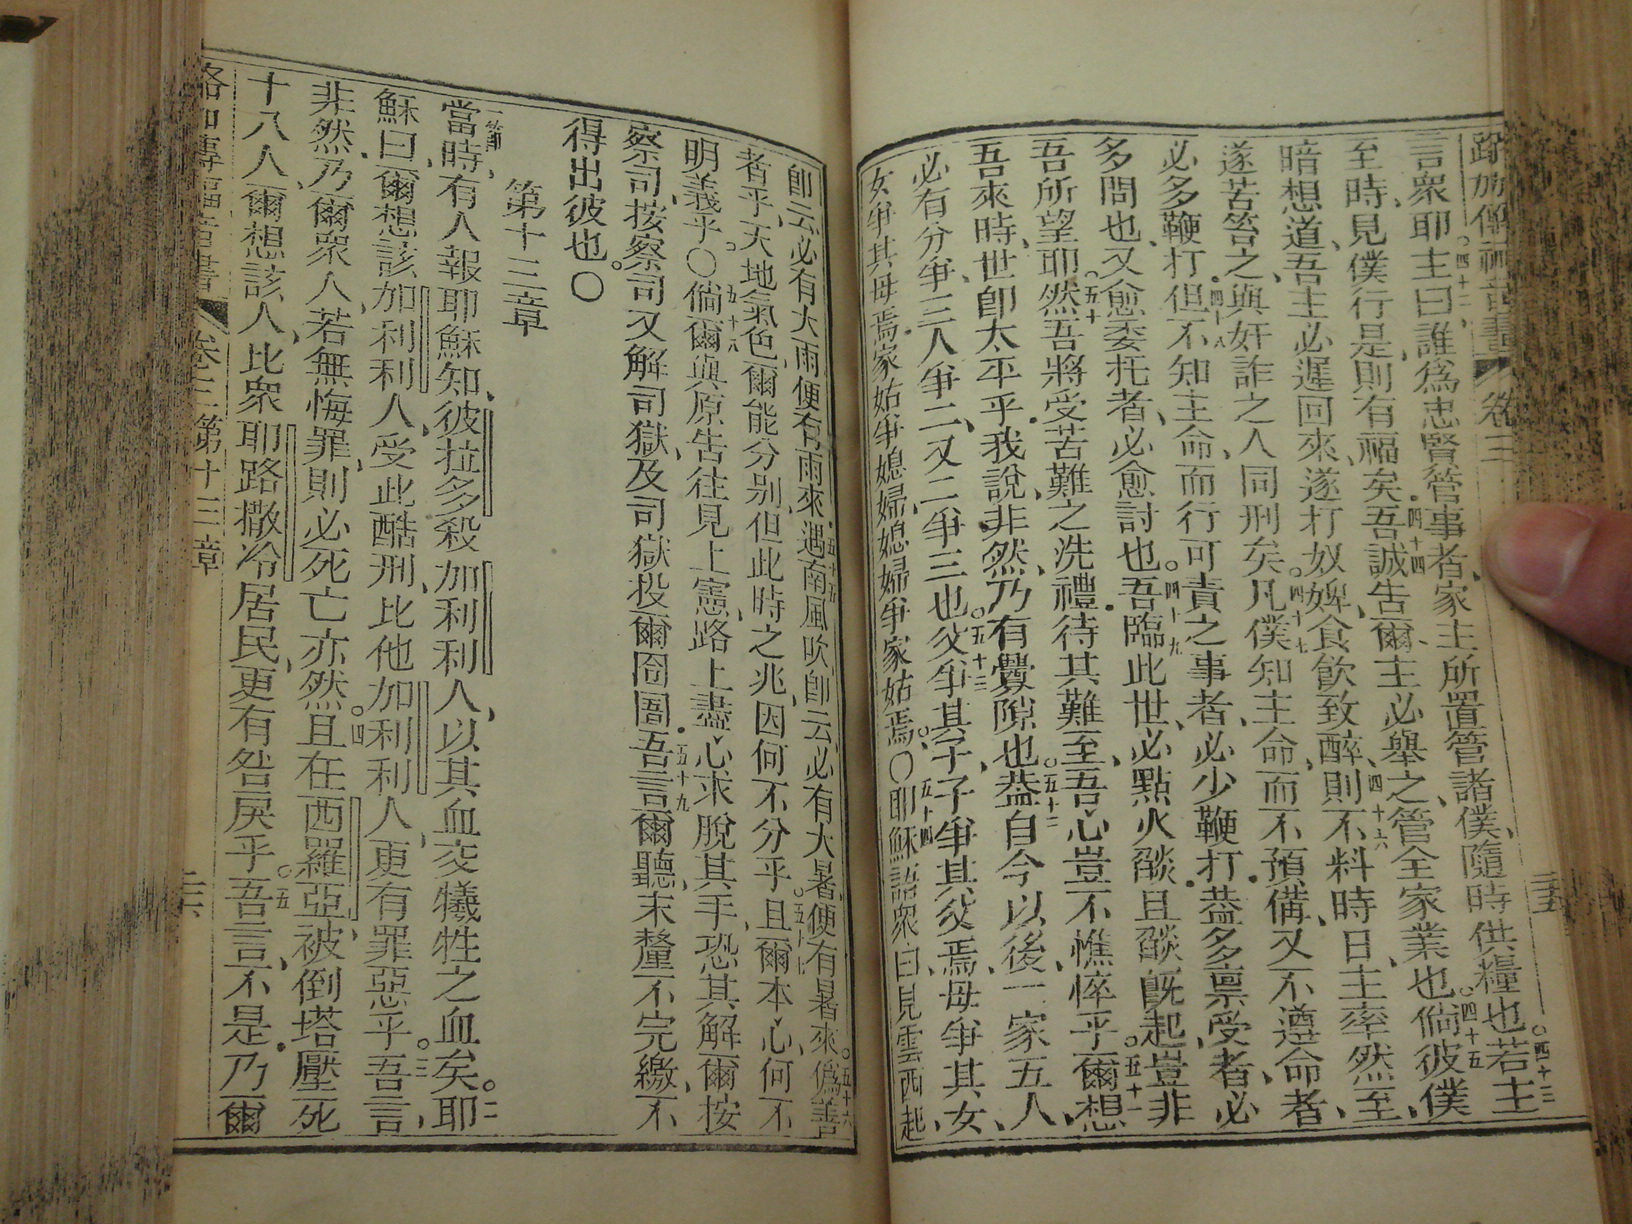 路加傳福音書 卷三 三五
言衆耶主曰誰爲忠賢管事者、家主所置管諸僕、隨時供糧也。四十三若主
至時見僕行是、則有福矣。四十四吾誠告爾、主必舉之、管全家業也。四十五倘彼僕
暗想道、吾主必遲回來、遂打奴婢、食飲致醉、四十六則不料時日、主率然至、
遂苦笞之、與奸詐之人同刑矣。四十七凡僕知主命、而不預備、又不遵命者、
必多鞭打。四十八但不知主命而行可責之事者、必少鞭打。蓋多禀受者、必
多問也、又愈委托者、必愈討也。四十九吾臨此世、必點火燄、且燄旣起、豈非
吾所望耶。五十然吾將受苦難之洗禮、待其難至、吾心豈不憔悴乎。五十一爾想
吾來時、世卽太平乎。我說、非然、乃有釁隙也。五十二蓋自今以後、一家五人、
必有分爭、三人爭二、又二爭三也。五十三父爭其子、子爭其父焉、母爭其女、
女爭其母焉、家姑爭媳婦、媳婦爭家姑焉。〇五十四耶穌語衆曰、見雲西起、
卽云必有大雨、便有雨來。五十五遇南風吹、卽云必有大暑、便有暑來。五十六僞善
者乎、天地氣色爾能分别、但此時之兆、因何不分乎。五十七且爾本心、何不
明義乎。〇五十八倘爾與原告往見上憲、路上盡心求脫其手、恐其解爾按
察司、按察司又解司獄、及司獄投爾囹圄。五十九吾言爾聽、末釐不完繳、不
得出彼也。〇
第十三章
一節當時、有人報耶穌知、彼拉多殺加利利人、以其血交犧牲之血矣。二耶
穌曰、爾想該加利利人、受此酷刑、比他加利利人、更有罪惡乎。三吾言、
非然、乃爾衆人、若無悔罪、則必死亡亦然。四且在西羅亞、被倒塔壓死
十八人、爾想該人、比衆耶路撒冷居民、更有咎戾乎。五吾言、不是、乃爾
路加傳福音書 卷三第十三章